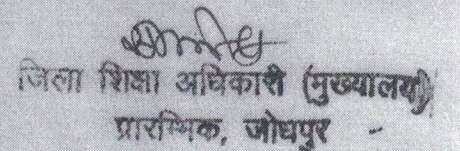 जिला शिक्षा अधिकारी (मुख्यालय)
प्रारम्भिक, जोधपुर